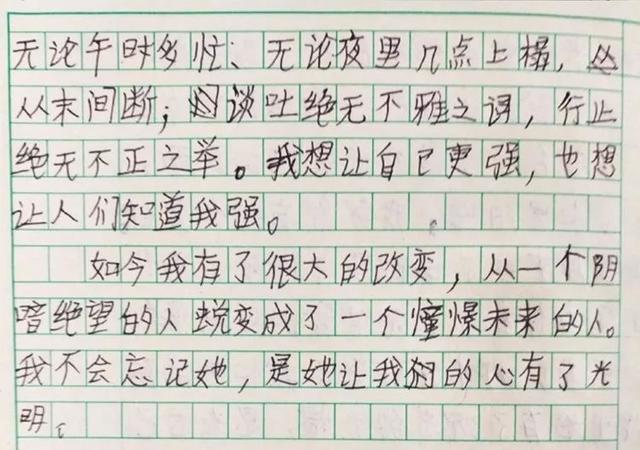 无论午时多忙、无论夜里几点上榻，
从末间断；谈吐绝无不雅之词，行止
绝无不正之举。我想让自己更强，也想
让人们知道我强。
如今我有了很大的改变，从一个阴
暗绝望的人蜕变成了一个憧憬未来的人。
我不会忘记她，是她让我的心有了光
明。